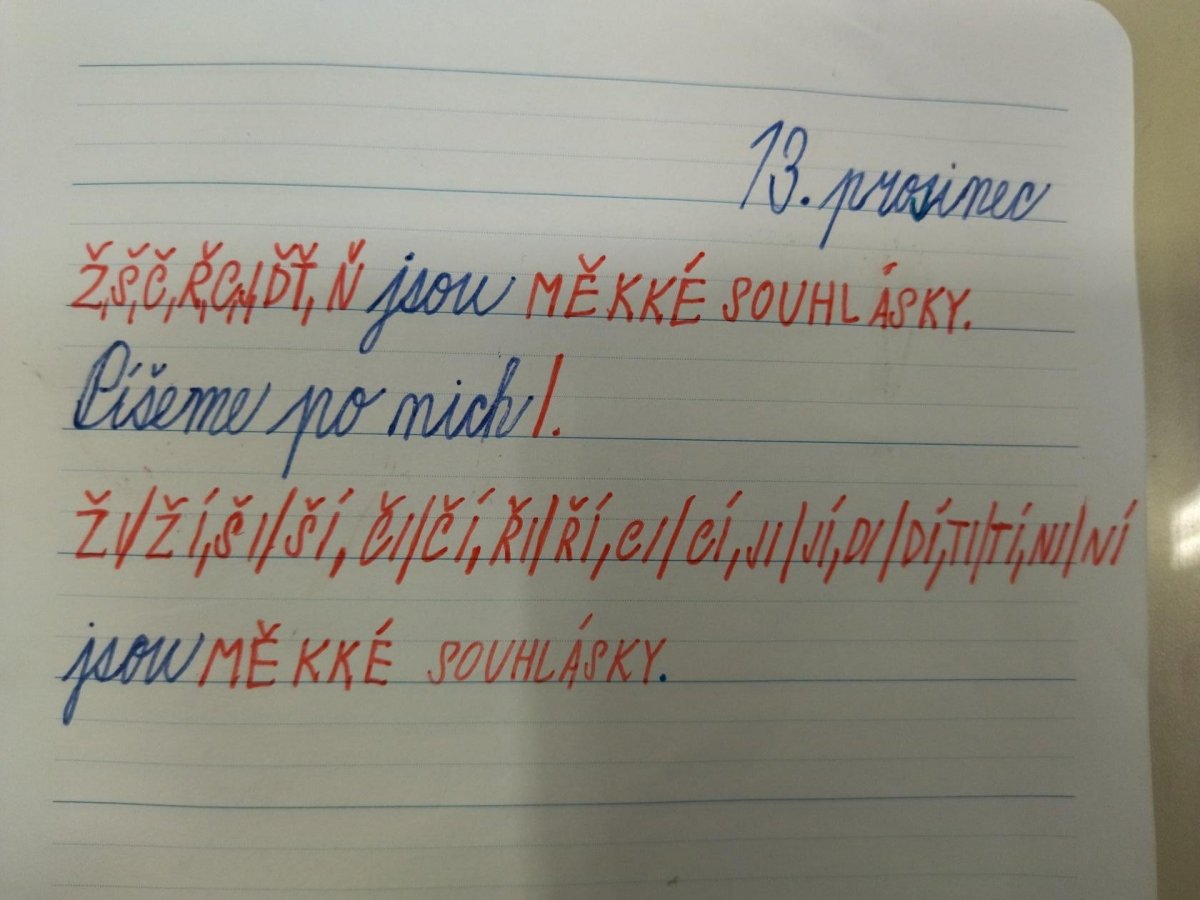 13. prosinec
Ž,Š,Č,Ř,C,J,Ď,Ť,Ň jsou MĚKKÉ SOUHLÁSKY.
Píšeme po nich I.
ŽI/ŽÍ,ŠI/ŠÍ, ČI/ČÍ, ŘI/ŘÍ, CI/CÍ, JI/JÍ, DI/DÍ,TI/TÍ,NI/NÍ
jsou MĚKKÉ SOUHLÁSKY.